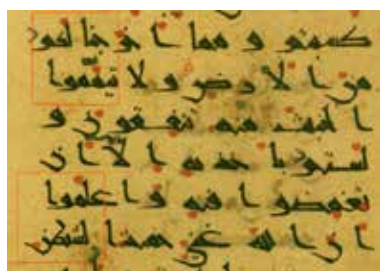 كسبتم و مما اخرجنا لكم
من الارض و لا تيمموا
الخبيث منه تنفقون و
لستم باخذيه الا ان
تغمضوا فيه و اعلموا
ان الله غني حميد الشيطن